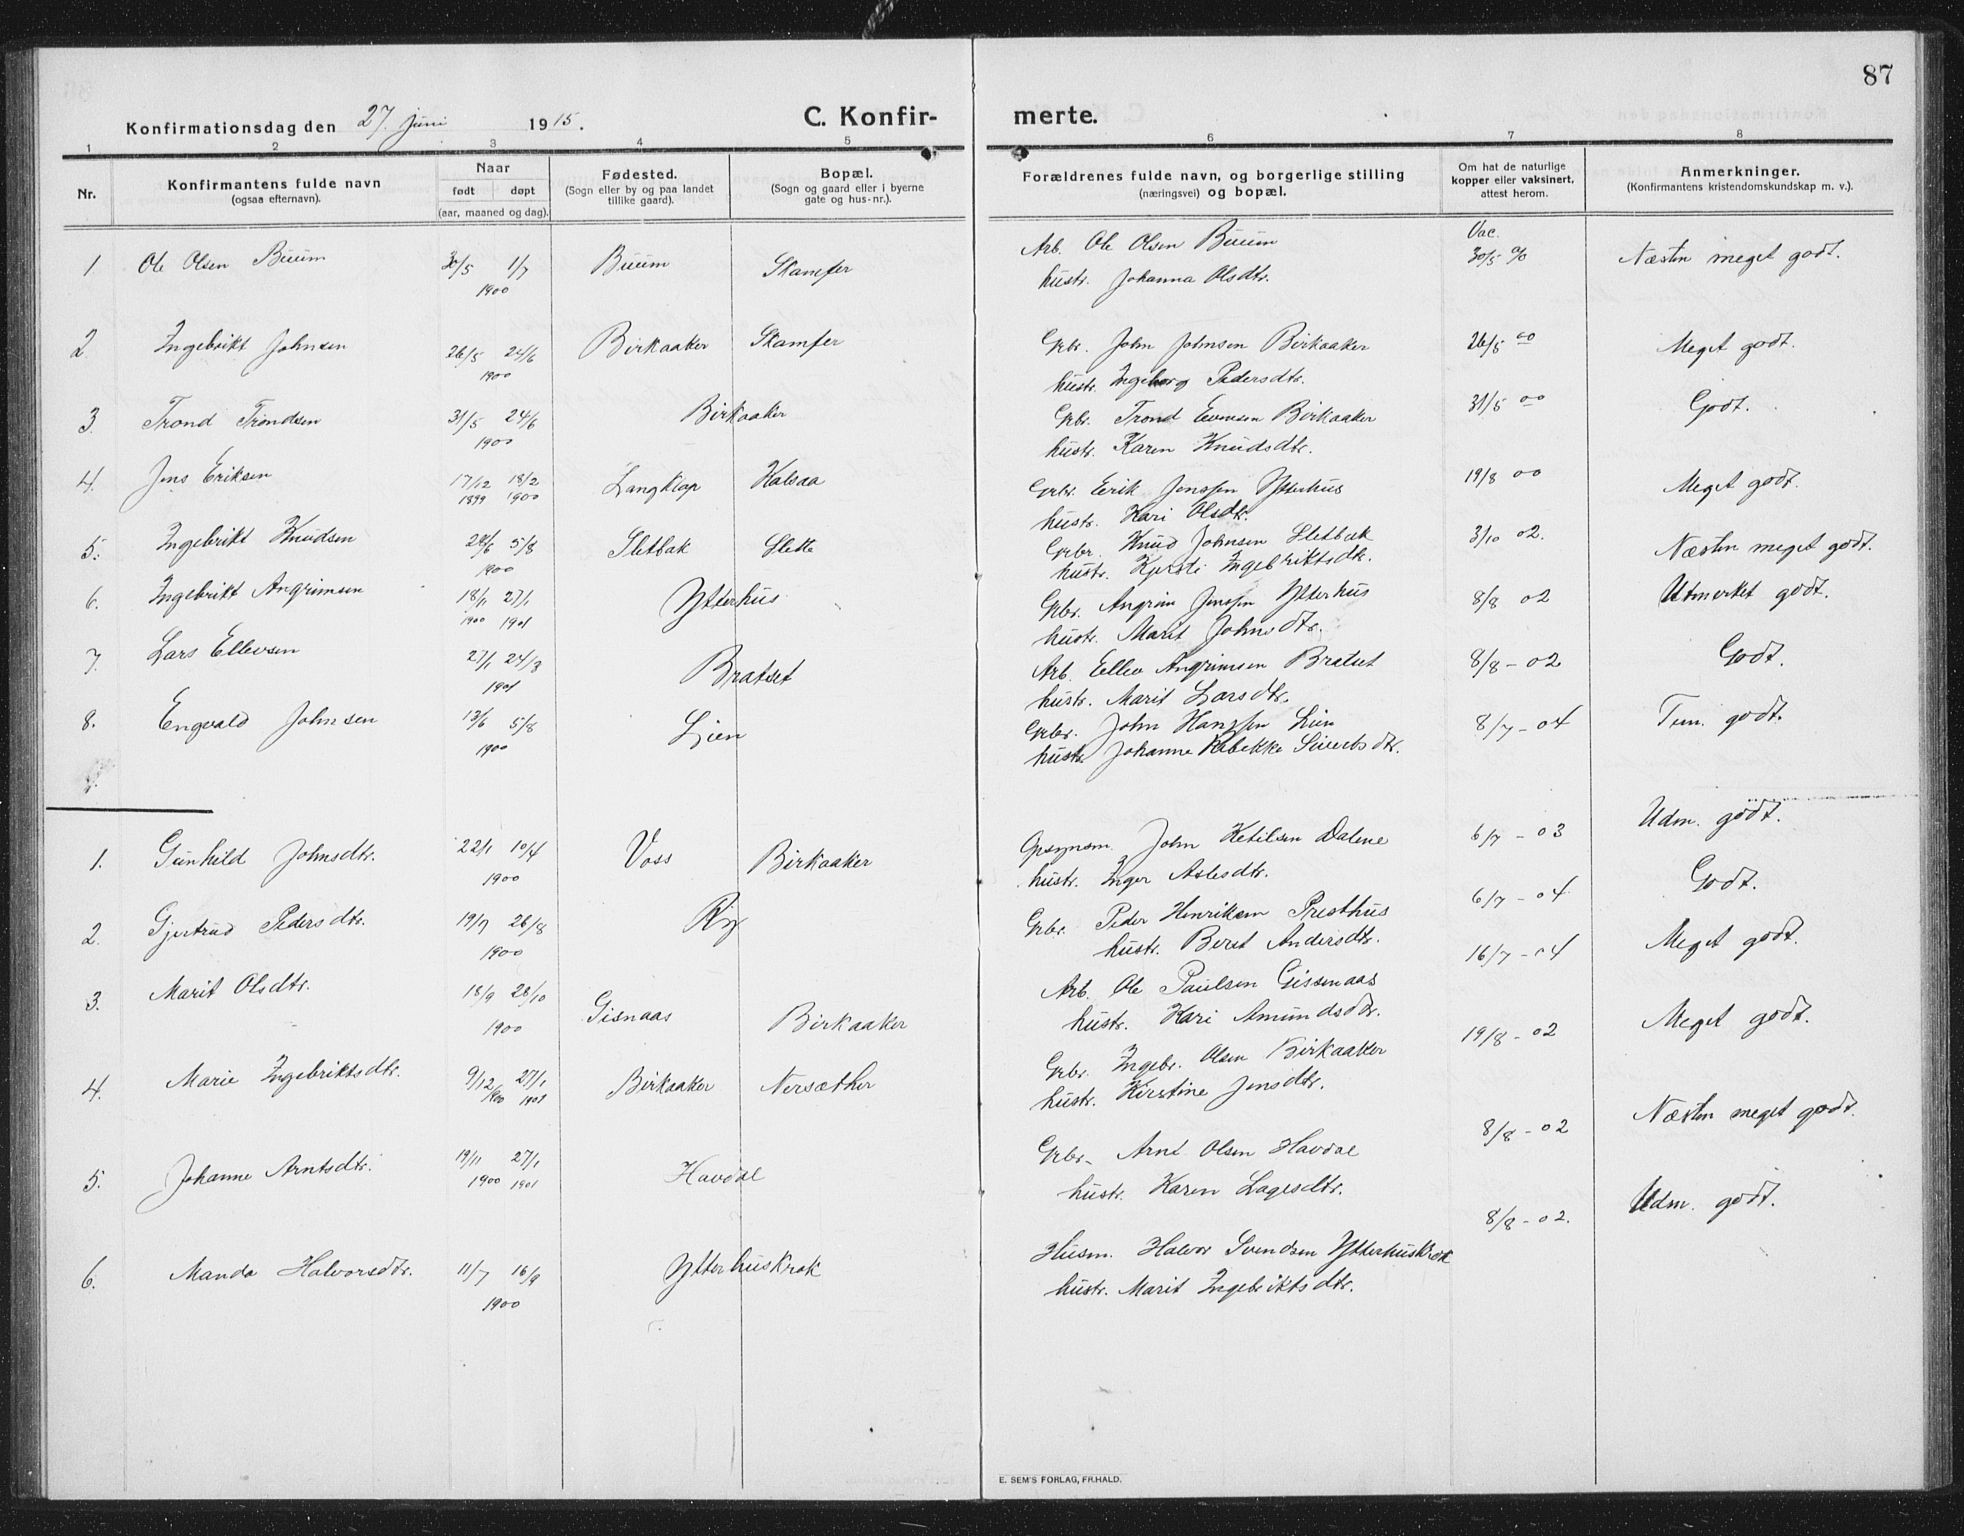 87
Konfirmationsdag den 27. juni 1915.
C. Konfir-
merte.
1 2 3 4 5 6 7 8
Nr.
Konfirmantens fulde navn
(ogsaa efternavn).
Naar
født døpt
(aar, maaned og dag).
Fødested.
(Sogn eller by og paa landet
tillike gaard).
Bopæl.
(Sogn og gaard eller i byerne
gate og hus-nr.).
Forældrenes fulde navn, og borgerlige stilling
(næringsvei) og bopæl.
Om hat de naturlige
kopper eller vaksinert,
attest herom.
Anmerkninger.
(Konfirmantens kristendomskundskap m. v.).
Vac.
1 Ole Olsen Buum 30/5 1/7 Buum Skamfer Arb. Ole Olsen Buum 30/5 Næsten meget godt.
1900 hustr. Johanna Olsdtr.
2 Ingebrikt Johnsen 26/5 24/6 Birkaaker Skamfer Gbr. John Johnsen Birkaaker 26/5 00 Meget godt.
1900 hustr. Ingeborg Pedersdtr.
3. Trond Trondsen 31/5 24/6 Birkaaker Gbr. Trond Evensen Birkaaker 31/5 00 Godt.
1900 hustr. Karen Knudsdtr.
4. Jens Eriksen 17/12 18/2 Langklop Halsaa Gbr. Erik Jenssen Ytterhus 19/8 00 Meget godt.
1899 1900 hustr. Kari Olsdtr.
5. Ingebrikt Knudsen 5/8 Sletbak Slette Gbr. Knud Johnsen Sletbak 3/10 02. Næsten meget godt.
1900 hustr. Kjersti Ingebriktsdtr.
6. Ingebrikt Angrimsen 18/11 27/1 Ytterhus Gbr. Angrim Jenssen Ytterhus 8/8 02 Utmerket godt.
1900 1901 hustr. Marit Johnsdtr.
7. Lars Ellevsen 27/1 24/3 Bratset Arb. Ellev Angrimsen Bratset 8/8 - 02 Godt.
1901 hustr. Marit Larsdtr.
8. Engvald Johnsen 13/6 5/8 Lien Gbr. John Hanssen Lien 8/7 - 04 Tem. godt.
1900 hustr. Johanne Rebekke Sivertsdtr.
1. Gunhild Johnsdtr. 22/1 10/4 Voss Birkaaker John Ketilsen Dalene 6/7 - 03 Udm. godt.
1900 hustr. Inger Aslesdtr.
2. Gjertrud Pedersdtr. 19/7 26/8 Gbr. Peder Henriksen Presthus 6/7 - 04 Godt.
1900 hustr. Beret Andersdtr.
3. Marit Olsdtr. 18/9 28/10 Gisnaas Birkaaker Arb. Ole Paulsen Gissenaas 16/7 - 04 Meget godt.
1900 hustr. Kari Amundsdtr.
4. Marie Ingebriktsdtr. 9/12 27/1 Birkaaker Nersæther Gbr. Ingebr. Olsen Birkaaker 19/8 - 02 Meget godt.
1900 1901 hustr. Kirstine Jensdtr.
5. Johanne Arntsdtr. 19/11 27/1 Havdal Gbr. Arnt Olsen Havdal 8/8 - 02 Næsten meget godt.
1900 1901 hustr. Karen Lagesdtr.
6. Manda Halvorsdtr. 11/7 16/9 Ytterhuskrok Husm. Halvor Svendsen Ytterhuskrok 8/8 - 02. Udm. godt.
1900 hustr. Marit Ingebriktsdtr.
E. SEM'S FORLAG, FR.HALD.